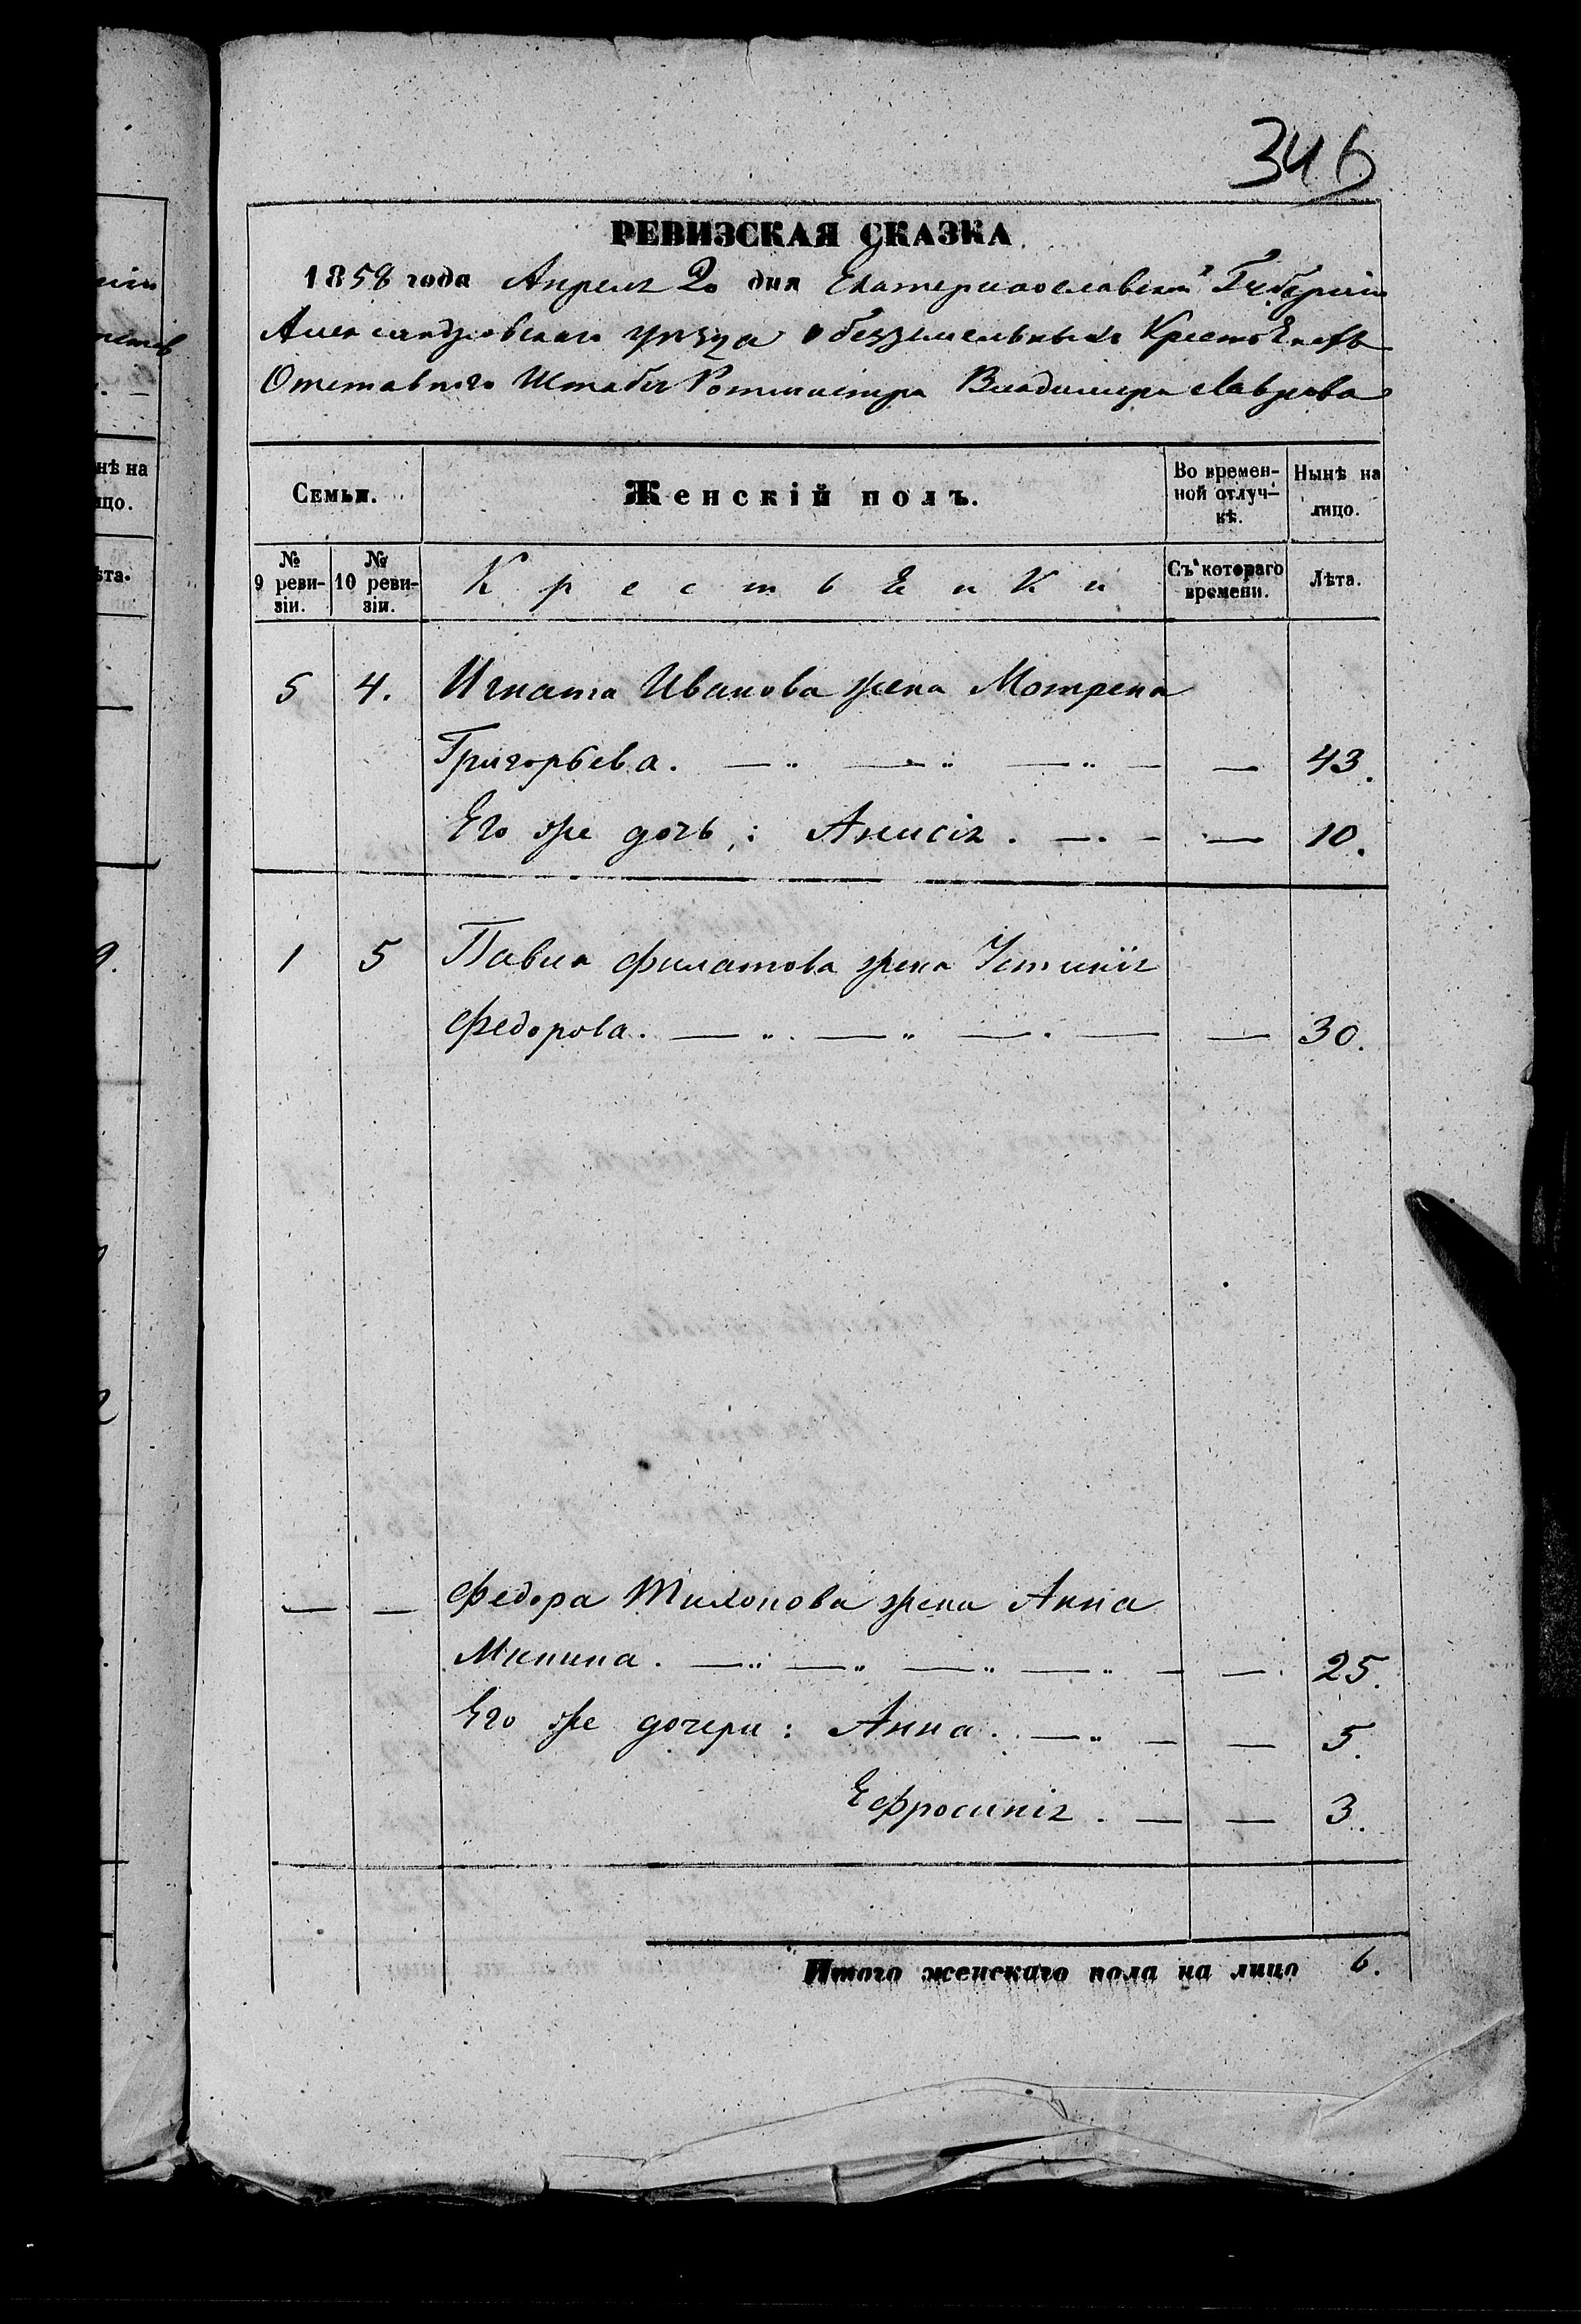 346
РЕВИЗСКАЯ СКАЗКА
1858 года Апреля 2 дня Екатеринославской Губерніи
Александровскаго уезда о безземельныхъ Крестьянахъ
Отставного Штабсъ Ротмистра Владимира Лаврова
Семьи. Женскій полъ. Во времен-ной отлуч-кѣ. Нынѣ на лицо.
№ 9 реви-зіи. № 10 реви-зіи. Крестьянки Съ котораго времени. Лѣта.
5 4. Игната Иванова жена Мотрена
Григорьева. — — — — — 43.
Его же дочь: Анисія. — - — 10.
1 5 Павла Филатова жена Устинія
Федорова. — — — — — 30.
— — Федора Тихонова жена Анна
Минина. — — — — - — 25.
Его же дочери: Анна. — — — 5.
Ефросинія. — — 3.
Итого женскаго пола на лицо 6.
нѣ на
цо.
ѣта.
9.